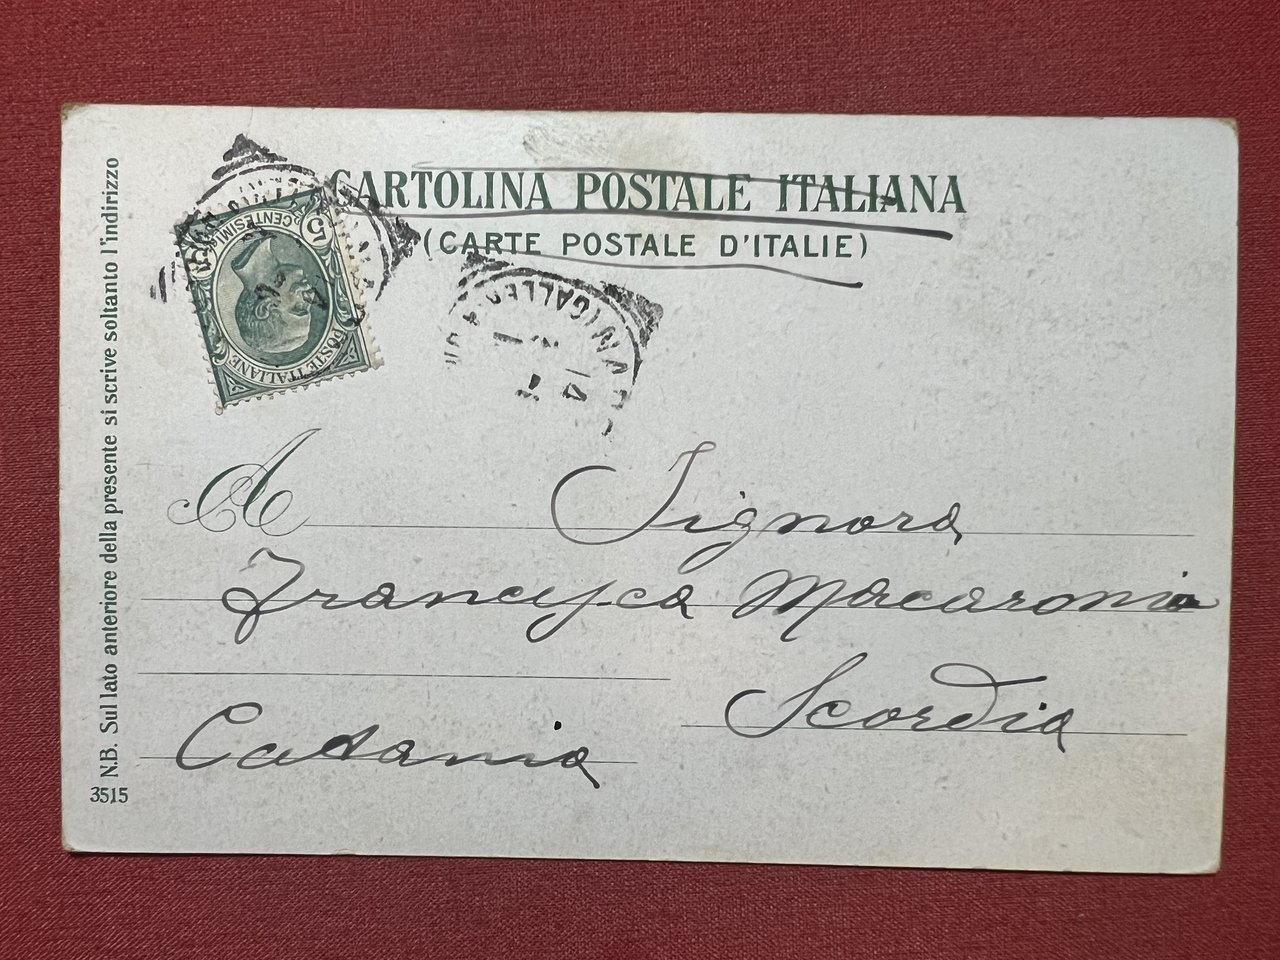 CARTOLINA POSTALE ITALIANA
(CARTE POSTALE D'ITALIE)
5
CENTESIMI
POSTE ITALIANE
A Signora
Francesca Macaronia
Scordia
Catania
N.B. Sul lato anteriore della presente si scrive soltanto l'indirizzo
3515